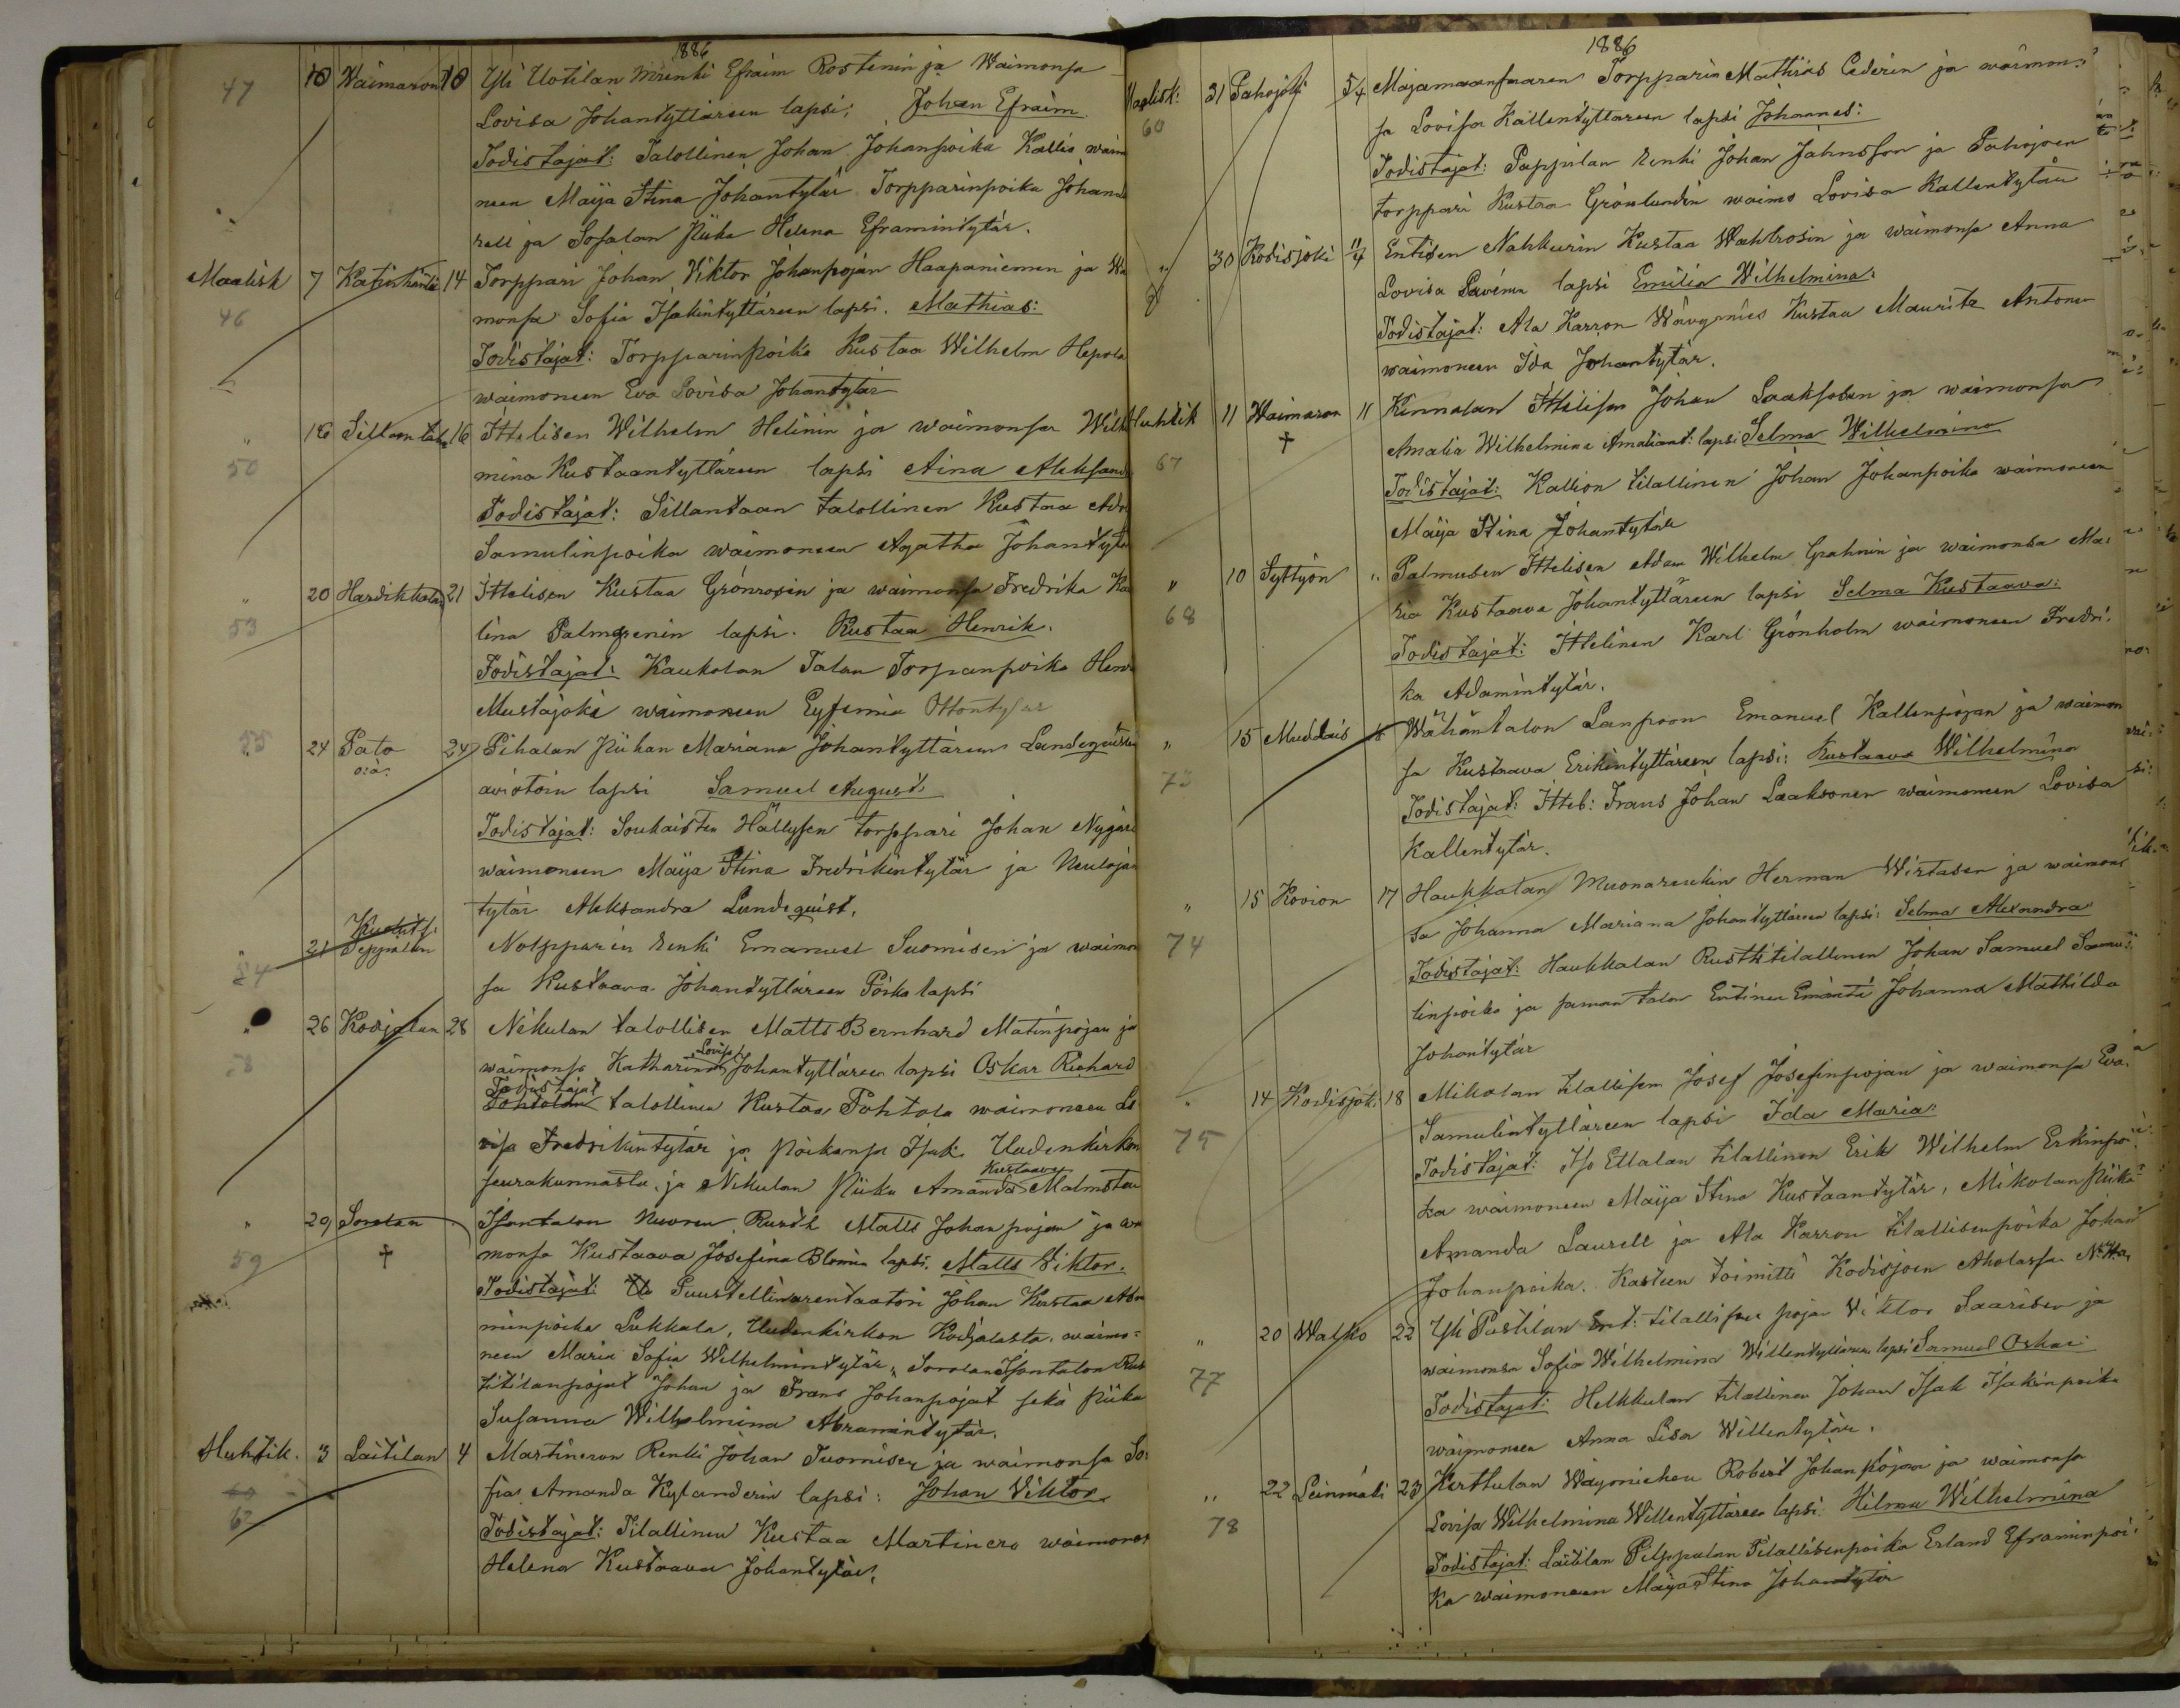 1886
47 10 Waimaron 10 Yli Uotilan Mrenki Efraim Rostenin ja Waimonsa
Lovisa Johantyttäreen lapsi: Johan Efraim
Todistajat: Talollinen Johan Johanpoika Kallio waim
neen Maija Stina Johantytär Torpparinpoika Johan
rell ja Sofalan Piika Helena Eframintytär.
Maalisk 7 14 Torppari Johan Viktor Johanpojan Haapaniemen ja Wa
46 monsa Sofia Isakintyttäreen lapsi. Mathias:
Todistajat: Torpparinpoika Kustaa Wilhelm Hepola
waimoneen Eva Lovisa Johantytär
" 16 16 Ittelisen Wilhelm Helinin ja waimonsa Wilh
50 mina Kustaantyttäreen lapsi Aina Aleksand
Todistajat: Sillantaan talollinen Kustaa Ad
Samulinpoika waimoneen Agatha Johantytä
" 20 21 Ittelisen Kustaa Grönrosin ja waimonsa Fredrika Ka
53 lina Palmgrenin lapsi. Kustaa Henrik.
Todistajat: Kaukolan Talon Torpanpoika Hen
Mustajoki waimoneen Eufemia Ottontytär
55 24 Pato 24 Pihalan Piikan Mariana Johantyttäreen Lundequistin
o:ä: aviotoin lapsi Samuel August:
Todistajat: Soukaisten Hällyfen torppari Johan Nygård
waimoneen Maija Stina Fredrikintytär ja Neuloja
tytär Aleksandra Lundequist.
" 21 Seppälän Nolpparin renki Emanuel Suomisen ja waimon
54 sa Kustaava Johantyttäreen Poika lapsi
" 26 Kodjalan 28 Nikulan talollisen Matts Bernhard Matinpojan ja
58 waimonsa Katharina Lovisa Johantyttäreen lapsi Oskar Richard
Todistajat talollinen Kustaa Pohtola waimoneen Lo
visa Fredrikintytär ja Poikansa Isak Uudenkirkon
seurakunnasta ja Nikulan Piika Amanda Kustaava Malmsten
" 29 Sorolan Isontalon Nuoren Rusth Matts Johanpojan ja wa
59 † monsa Kustaava Josefina Blomin lapsi. Matts Viktor.
Todistajat: Puustellinarentaatori Johan Kustaa Abra
minpoika Lukkala, Uudenkirkon Kodjalasta. waimo=
neen Maria Sofia Wilhelmintytär, Sorolan Isontalon Rus
titilanpojat Johan ja Frans Johanpojat sekä Piika
Susanna Wilhelmina Abramintytär.
Huhtik. 3 Laitilan 4 Martineron Renki Johan Tuomisen ja waimonsa So:
62 fia Amanda Kylanderin lapsi: Johan Viktor
Todistajat: Tilallinen Kustaa Martinero waimonen
Helena Kustaava Johantytär.
1886
Maalisk: 31 Pahojoki 5/4 Majamaanfaaren Torpparin Mathias Cederin ja waimon=
60 sa Lovisa Kallentyttäreen lapsi Johannes:
Todistajat: Pappilan renki Johan Jahnsson ja Pahojoen
torppari Kustaa Grönlundin waimo Lovisa Kallentytär
" 30 Kodisjoki 11/4 Entisen Nahkurin Kustaa Wahlrosin ja waimonsa Anna
Lovisa Lavénin lapsi Emilia Wilhelmina:
Todistajat: Ala Karron Wävymies Kustaa Mauritz Antonen
waimoneen Ida Johantytär.
Huhtik 11 Waimaron 11 Kinnalan Ittellisen Johan Laaksosen ja waimonsa
67 † Amalia Wilhelmina Amaliant: lapsi Selma Wilhelmina
Todistajat: Kallion tilallinen Johan Johanpoika waimoneen
Maija Stina Johantytär
" 10 Syttyön " Palmusen Ittelisen Adam Wilhelm Grahnin ja waimonsa Ma=
68 ria Kustaava Johantyttäreen lapsi Selma Kustaava:
Todistajat: Ittelinen Karl Grönholm waimoneen Fredri=
ka Adamintytär.
" 15 Muddais Wähäntalon Lanpoon Emanuel Kallenpojan ja waimon
sa Kustaava Erikintyttäreen lapsi: Kustaava Wilhelmina
Todistajat: Ittel: Frans Johan Laaksonen waimoneen Lovisa
Kallentytär.
" 15 Kovion 17 Haukkalan Muonarenkin Herman Wirtasen ja waimon=
74 sa Johanna Mariana Johantyttäreen lapsi: Selma Alexandra
Todistajat: Haukkalan Rusthtilallinen Johan Samuel Samu=
linpoika ja saman talon Entinen Emäntä Johanna Mathilda
Johantytär
" 14 Kodisjoki 18 Mikolan tilallisen Josef Josefinpojan ja waimonsa Eva
75 Samulintyttäreen lapsi Ida Maria:
Todistajat: Iso Ellalan tilallinen Erik Wilhelm Erkinpoi=
ka waimoneen Maija Stina Kustaantytär, Mikolan Piika
Amanda Laurell ja Ala Karron tilallisenpoika Johan
Johanpoika. Kasteen toimitti Kodisjoen Aholassa
" 20 Walko 22 Yli Pastilan Ent: tilallisen pojan Viktor Saarisen ja
77 waimonsa Sofia Wilhelmina Willentyttäreen lapsi Samuel Oskar
Todistajat: Helkkulan tilallinen Johan Isak Isakinpoika
waimoneen Anna Lisa Willentytär.
" 22 Leinmäki 23 Kerttulan Wäymiehen Robert Johanpojan ja waimonsa
78 Lovisa Wilhelmina Willentyttäreen lapsi. Hilma Wilhelmina
Todistajat: Laitilan Pilppulan Tilallisenpoika Erland Eframinpoi=
ka waimoneen Maija Stina Johantytär